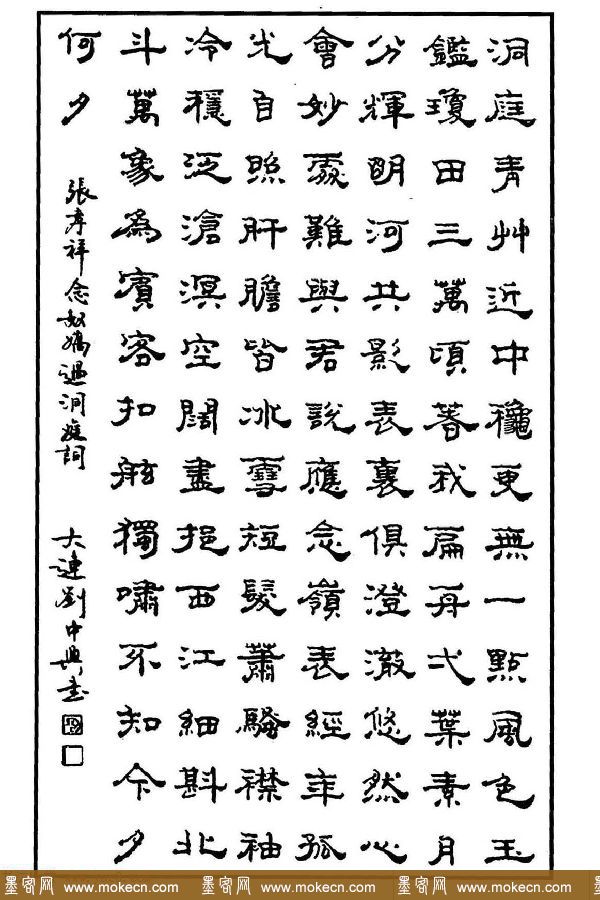 洞庭青艸近中龝更無一點風色玉
鑑瓊田三萬頃著我扁舟弌葉素月
分輝明河共影表裏俱澄澈悠然心
會妙處難與君說應念嶺表經年孤
光自照肝膽皆冰雪短髮蕭騷襟袖
冷穩泛滄溟空闊盡挹西江細斟北
斗萬象為賓客扣舷獨嘯不知今夕
何夕
張孝祥念奴嬌過洞庭詞
大連劉中興書
墨客网 www.mokecn.com 墨客网 www.mokecn.com 墨客网 www.mokecn.com